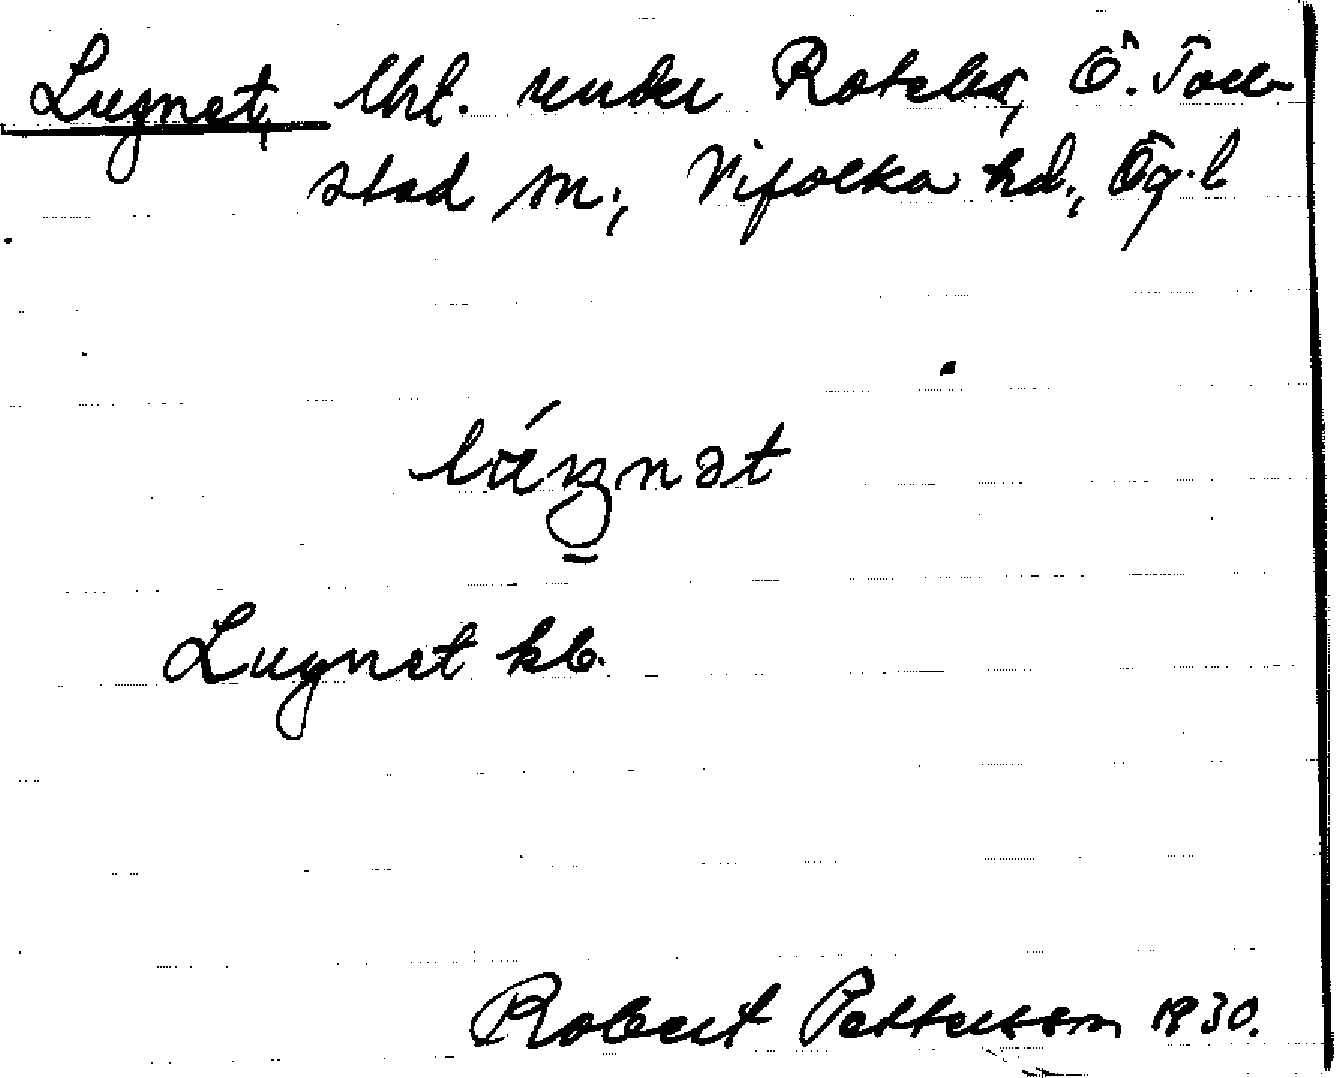 Lugnet, lht. under Rotebro, Ö. Toll-
stad sn., Vifolka hd., Ög. l
Lugnet kb.
Robert Pettersson 1930.